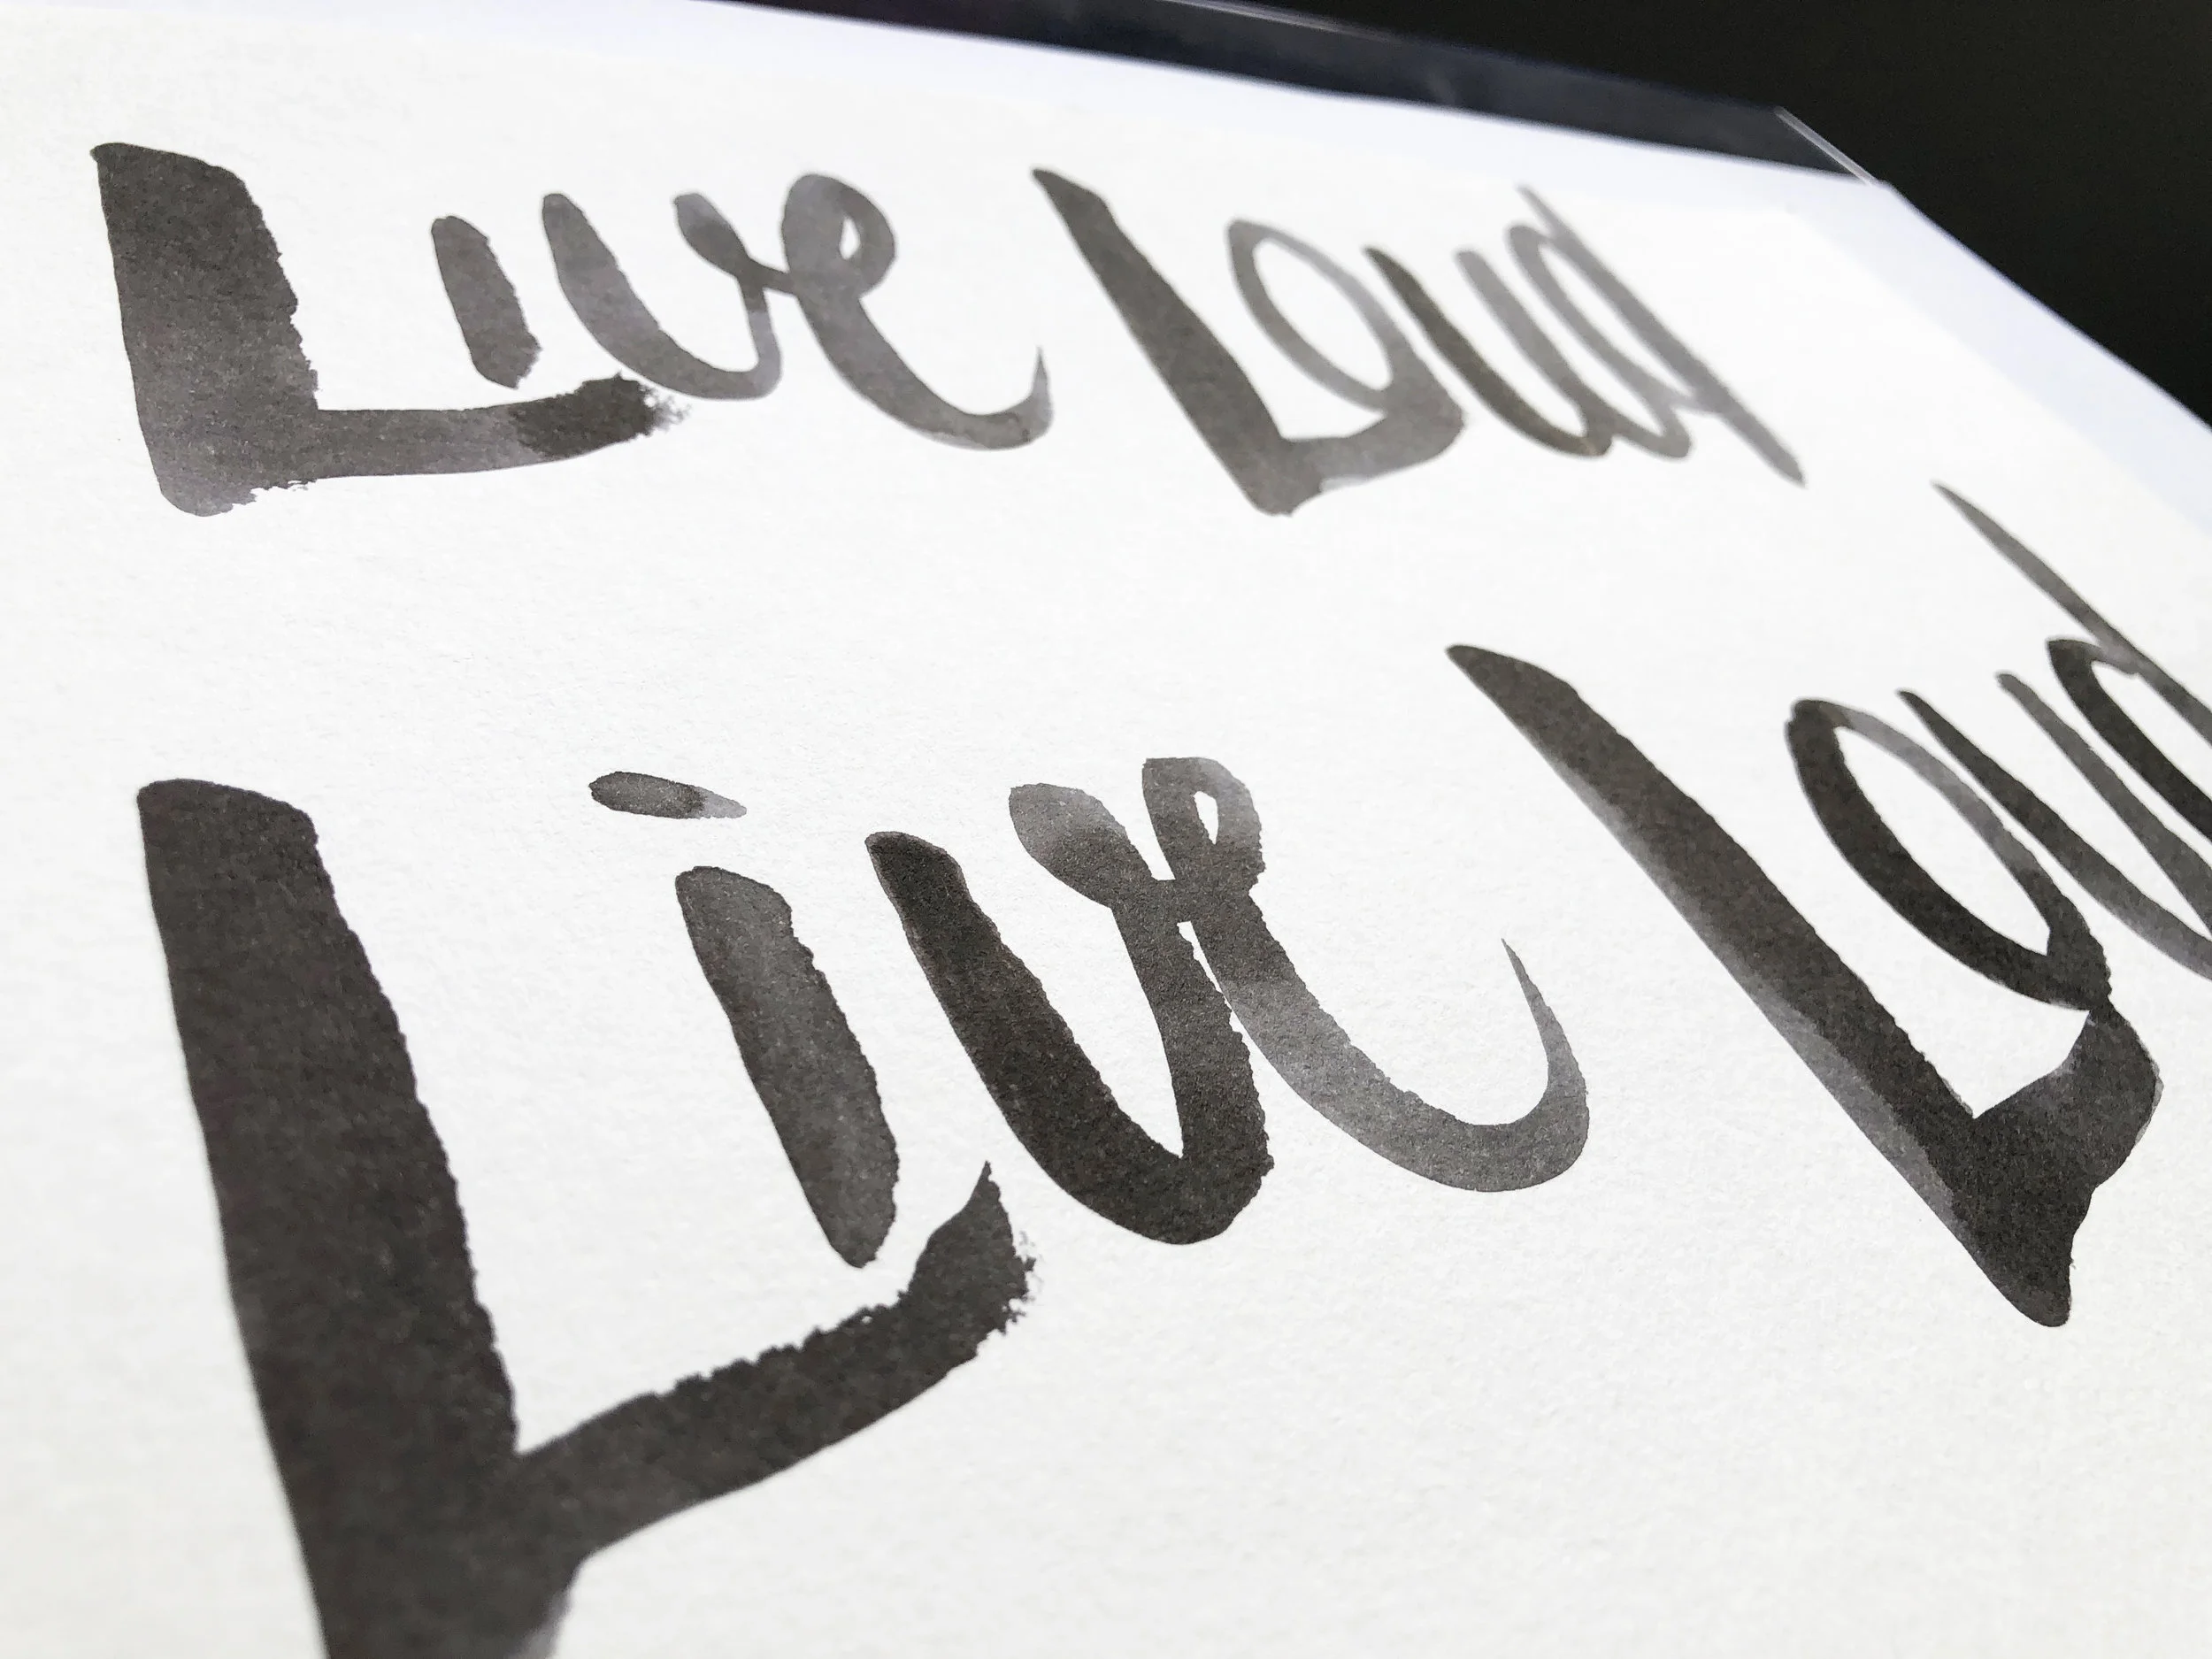 Live Loud
Live Loud